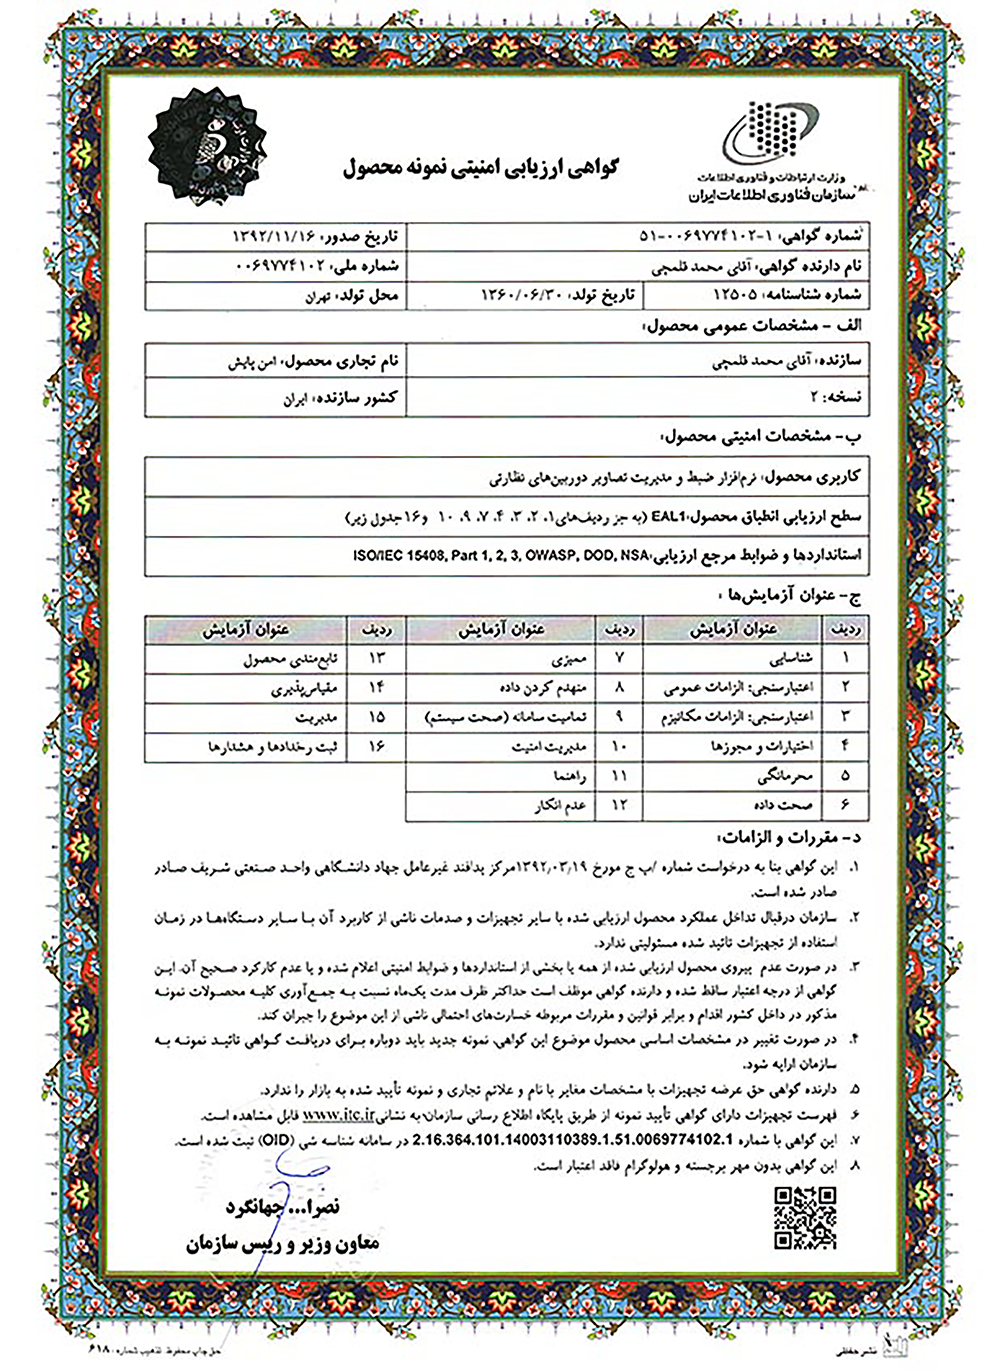 وزارت ارتباطات و فناوری اطلاعات
سازمان فناوری اطلاعات ایران
گواهی ارزیابی امنیتی نمونه محصول
شماره گواهی: ۱-۵۱-۰۰۶۹۷۷۴۱۰۲ تاریخ صدور: ۱۳۹۲/۱۱/۱۶
نام دارنده گواهی: آقای محمد قلمچی شماره ملی: ۰۰۶۹۷۷۴۱۰۲
شماره شناسنامه: ۱۲۵۰۵ تاریخ تولد: ۱۳۶۰/۰۶/۳۰ محل تولد: تهران
الف - مشخصات عمومی محصول:
سازنده: آقای محمد قلمچی نام تجاری محصول: امن پایش
نسخه: ۲ کشور سازنده: ایران
ب- مشخصات امنیتی محصول:
کاربری محصول: نرم‌افزار ضبط و مدیریت تصاویر دوربین‌های نظارتی
سطح ارزیابی انطباق محصول: EAL1 (به جز ردیف‌های ۱، ۲، ۳، ۴، ۷، ۹، ۱۰ و ۱۶ جدول زیر)
استانداردها و ضوابط مرجع ارزیابی: ISO/IEC 15408, Part 1, 2, 3, OWASP, DOD, NSA
ج- عنوان آزمایش‌ها :
ردیف عنوان آزمایش ردیف عنوان آزمایش ردیف عنوان آزمایش
۱ شناسایی ۷ ممیزی ۱۳ تابع‌مندی محصول
۲ اعتبارسنجی: الزامات عمومی ۸ منهدم کردن داده ۱۴ مقیاس‌پذیری
۳ اعتبارسنجی: الزامات مکانیزم ۹ تمامیت سامانه (صحت سیستم) ۱۵ مدیریت
۴ اختیارات و مجوزها ۱۰ مدیریت امنیت ۱۶ ثبت رخدادها و هشدارها
۵ محرمانگی ۱۱ راهنما
۶ صحت داده ۱۲ عدم انکار
د- مقررات و الزامات:
۱. این گواهی بنا به درخواست شماره /پ ج مورخ ۱۳۹۲٫۰۳٫۱۹ مرکز پدافند غیرعامل جهاد دانشگاهی واحد صنعتی شریف صادر
صادر شده است.
۲. سازمان درقبال تداخل عملکرد محصول ارزیابی شده با سایر تجهیزات و صدمات ناشی از کاربرد آن با سایر دستگاه‌ها در زمان
استفاده از تجهیزات تائید شده مسئولیتی ندارد.
۳. در صورت عدم پیروی محصول ارزیابی شده از همه یا بخشی از استانداردها و ضوابط امنیتی اعلام شده و یا عدم کارکرد صحیح آن، این
گواهی از درجه اعتبار ساقط شده و دارنده گواهی موظف است حداکثر ظرف مدت یک‌ماه نسبت به جمع‌آوری کلیه محصولات نمونه
مذکور در داخل کشور اقدام و برابر قوانین و مقررات مربوطه خسارت‌های احتمالی ناشی از این موضوع را جبران کند.
۴. در صورت تغییر در مشخصات اساسی محصول موضوع این گواهی، نمونه جدید باید دوباره برای دریافت گواهی تائید نمونه به
سازمان ارایه شود.
۵. دارنده گواهی حق عرضه تجهیزات با مشخصات مغایر با نام و علائم تجاری و نمونه تأیید شده به بازار را ندارد.
۶. فهرست تجهیزات دارای گواهی تأیید نمونه از طریق پایگاه اطلاع رسانی سازمان به نشانی www.itc.ir قابل مشاهده است.
۷. این گواهی با شماره 2.16.364.101.14003110389.1.51.0069774102.1 در سامانه شناسه شی (OID) ثبت شده است.
۸. این گواهی بدون مهر برجسته و هولوگرام فاقد اعتبار است.
نصرا... جهانگرد
معاون وزیر و رییس سازمان
نشر حفظی
حق چاپ محفوظ. تذهیب شماره ۶۱۸۰